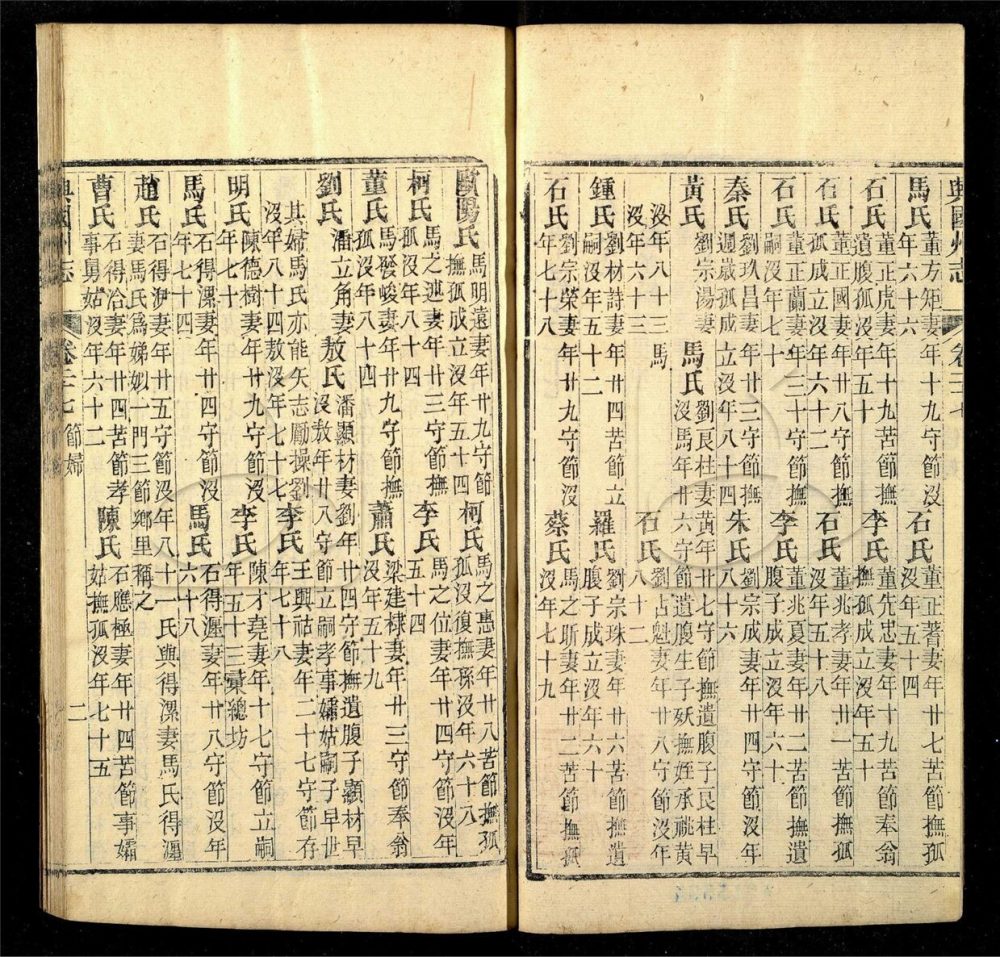 興國州志 卷二十七
馬氏 董方矩妻年十九守節沒
年六十六
石氏 董正著妻年廿七苦節撫孤
沒年五十四
石氏 董正虎妻年十九苦節撫
遺腹孤沒年五十
李氏 董先忠妻年十九苦節奉翁
撫孤成立沒年五十
石氏 董正國妻年廿八守節撫
孤成立沒年六十二
石氏 董兆孝妻年廿一苦節撫孤
沒年五十八
石氏 董正蘭妻年三十守節撫
嗣沒年七十
李氏 董兆夏妻年廿二苦節撫遺
腹子成立沒年六十
秦氏 劉玖昌妻年廿三守節撫
週歲孤成立沒年八十四
朱氏 劉宗成妻年廿四守節沒年
八十六
黃氏 劉宗湯妻
馬氏 劉艮柱妻黃年廿七守節撫遺腹子艮柱早
沒馬年廿六守節遺腹生子妖撫姪承祧黃
沒年八十三馬
沒年六十三
石氏 劉占魁妻年廿八守節沒年
八十二
鍾氏 劉材詩妻年廿四苦節立
嗣沒年五十二
羅氏 劉宗珠妻年廿六苦節撫遺
腹子成立沒年六十
石氏 劉宗榮妻年廿九守節沒
年七十八
蔡氏 馬之昕妻年廿二苦節撫孤
沒年七十九
歐陽氏 馬明遠妻年廿九守節
撫孤成立沒年五十四
柯氏 馬之惠妻年廿八苦節撫孤
孤沒復撫孫沒年六十八
柯氏 馬之述妻年廿三守節撫
孤沒年八十四
李氏 馬之位妻年廿四守節沒年
五十四
董氏 馬發峻妻年廿九守節撫
孤沒年八十四
蕭氏 梁建棣妻年廿三守節奉翁
沒年五十九
劉氏 潘立角妻
敖氏 潘顯材妻劉年廿四守節撫遺腹子顯材早
沒敖年廿八守節立嗣孝事孀姑嗣子早世
其婦馬氏亦能矢志勵操劉
沒年八十四敖沒年七十七
李氏 王興祜妻年二十七守節存
年七十八
明氏 陳德樹妻年廿九守節沒
年七十
李氏 陳才堯妻年十七守節立嗣
年五十三葉總坊
馬氏 石得漯妻年廿四守節沒
年七十四
馬氏 石得㵾妻年廿八守節沒年
六十八
趙氏 石得洢妻年廿五守節沒年八十一氏與得漯妻馬氏得㵾
妻馬氏爲娣姒一門三節鄉里稱之
曹氏 石得洽妻年廿四苦節孝
事舅姑沒年六十二
陳氏 石應極妻年廿四苦節事孀
姑撫孤沒年七十五
興國州志 卷二十七 節婦 二